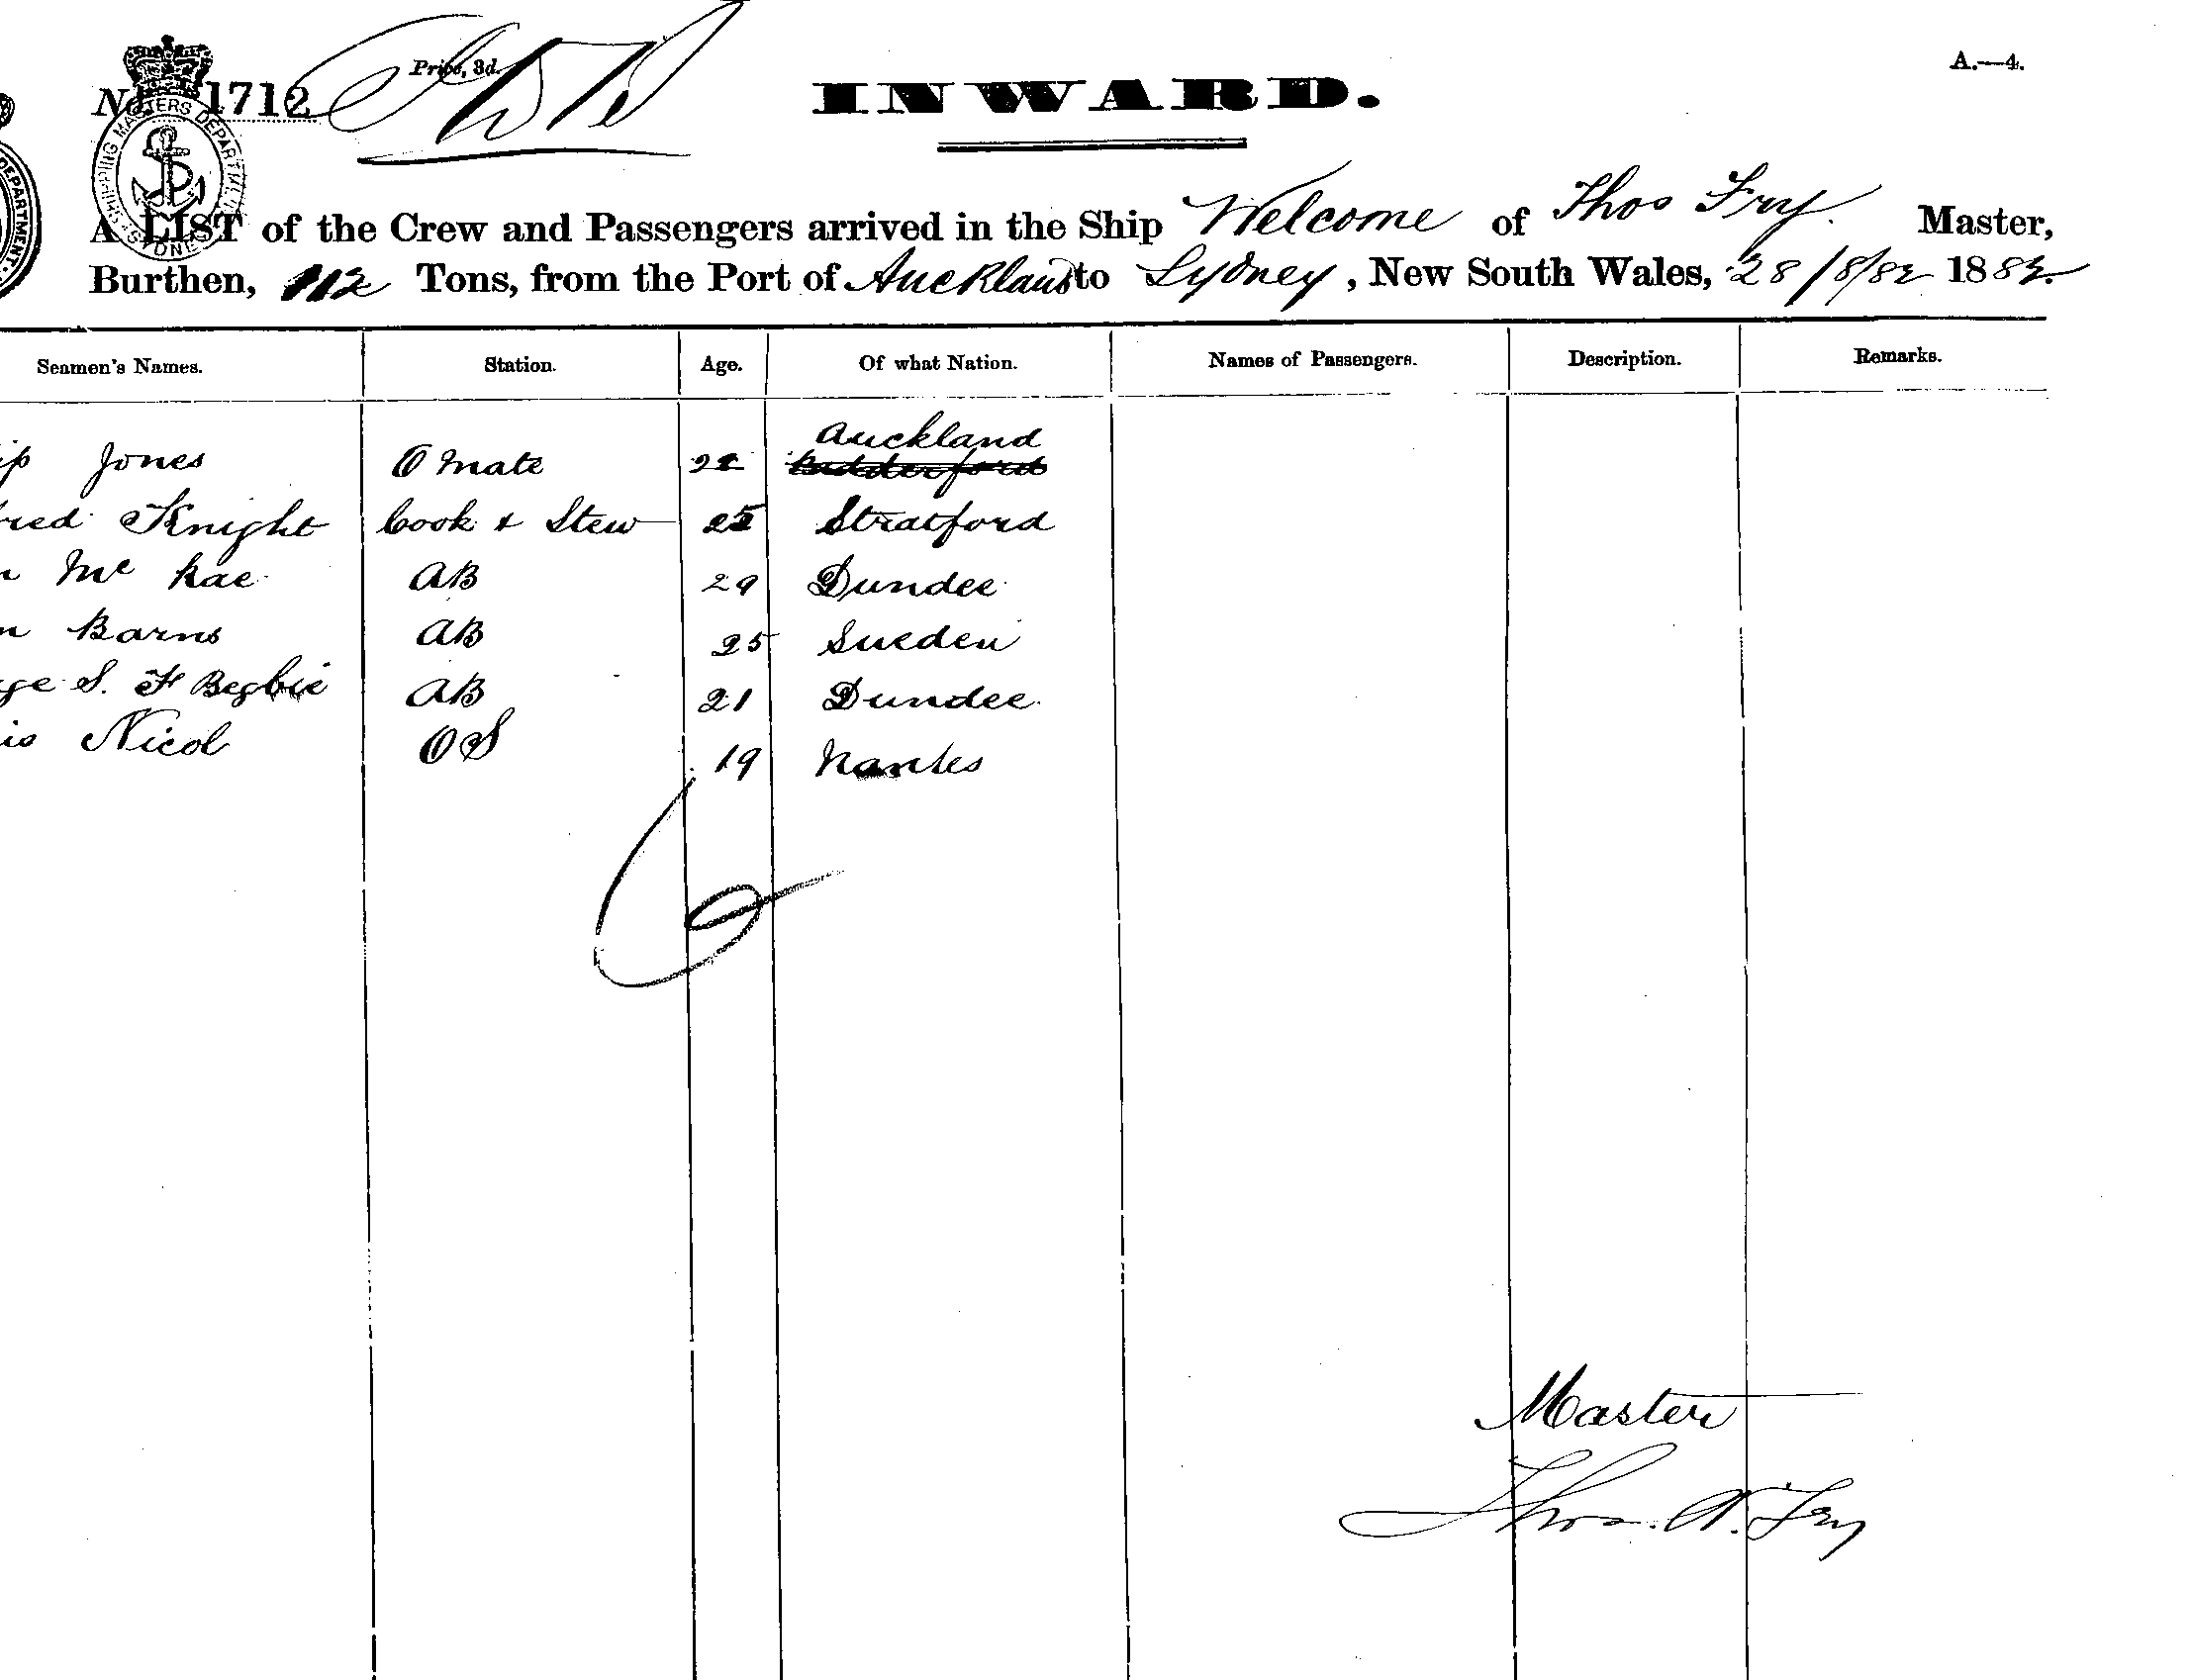 Price, 3d.
No. 1712
INWARD.
A.—4.
SHIPPING MASTERS DEPARTMENT SYDNEY
DEPARTMENT.
A LIST of the Crew and Passengers arrived in the Ship Welcome of Thos Fry. Master,
Burthen, 112 Tons, from the Port of Auckland to Sydney, New South Wales, 28/8/82 1882.
Seamen's Names. Station. Age. Of what Nation. Names of Passengers. Description. Remarks.
Auckland
ip Jones O Mate
red Knight Cook & Stew 25 Stratford
n Mc Rae AB 29 Dundee
n Barns AB 25 Sueden
ge S. F Begbie AB 21 Dundee
is Nicol OS 19 Nantes
Master
Thos. A. Fry